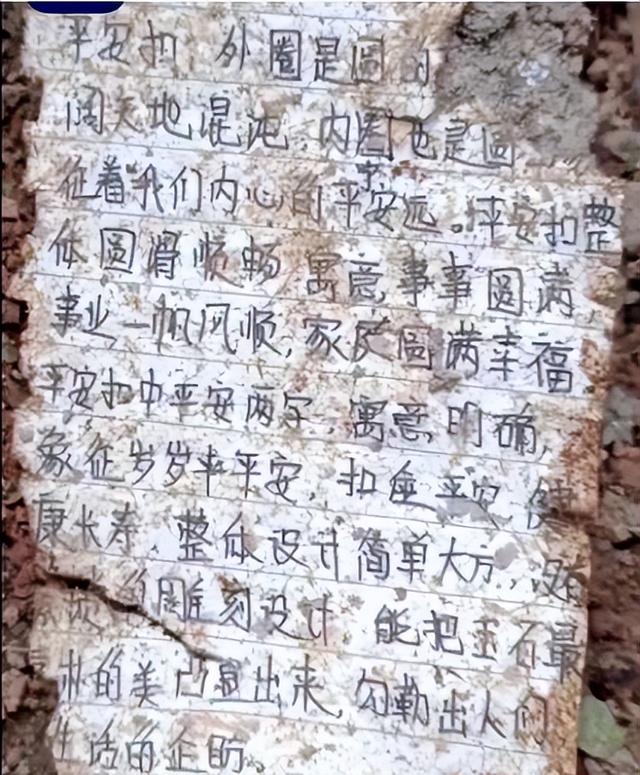 平安扣 外圈是圆的
阔天地混沌,内圈也是圆
征着我们内心的平安远。平安扣整
体圆滑顺畅 寓意事事圆满,
事业一帆风顺,家庭圆满幸福
平安扣中平安两字,寓意明确,
象征岁岁年平安,扣住平安 健
康长寿.整体设计简单大方,没
雕刻设计 能把玉石最
朴的美凸显出来,勾勒出人们
生活的企盼。